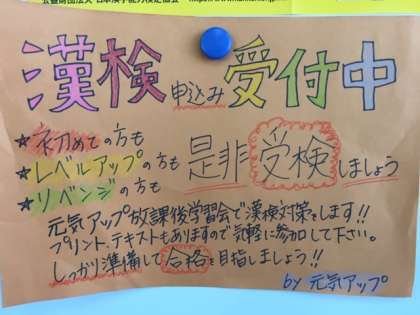 公益財団法人 日本漢字能力検定協会
漢検申込み受付中
★初めての方も
★レベルアップの方も
★リベンジの方も
是非受検しましょう
元気アップ放課後学習会で漢検対策をします!!
プリント、テキストもありますので気軽に参加して下さい。
しっかり準備して合格を目指しましょう!!
by 元気アップ